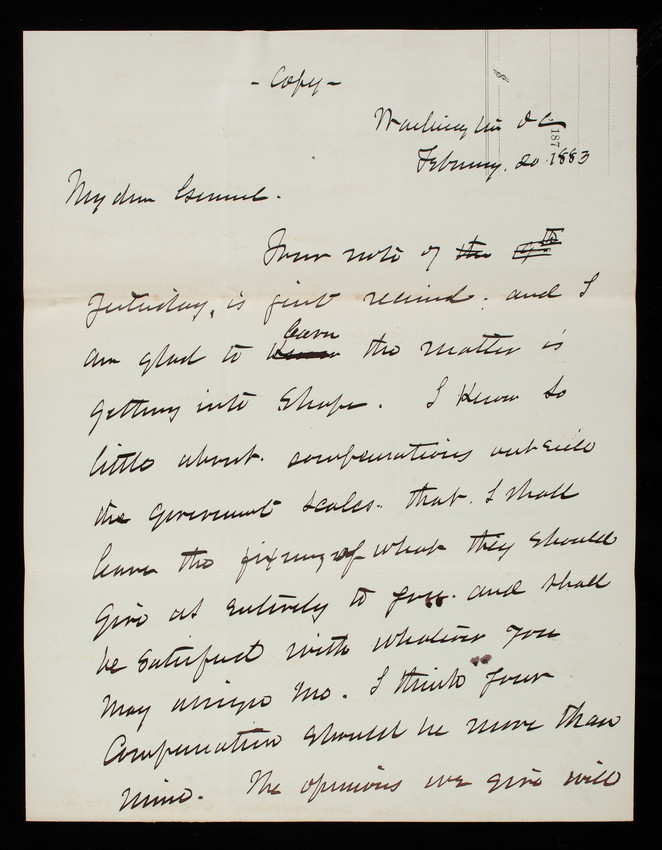 - Copy -
Washington D C
187
February. 20. 1883
My dear General.
Your note of the 9th
yesterday, is just received. and I
am glad to learn the matter is
getting into shape. I know so
little about. compensations outside
the Government scales. that. I shall
leave the fixing of what they should
give us entirely to you. and shall
be satisfied with whatever you
may assign me. I think your
compensation should be more than
mine. The opinions we give will